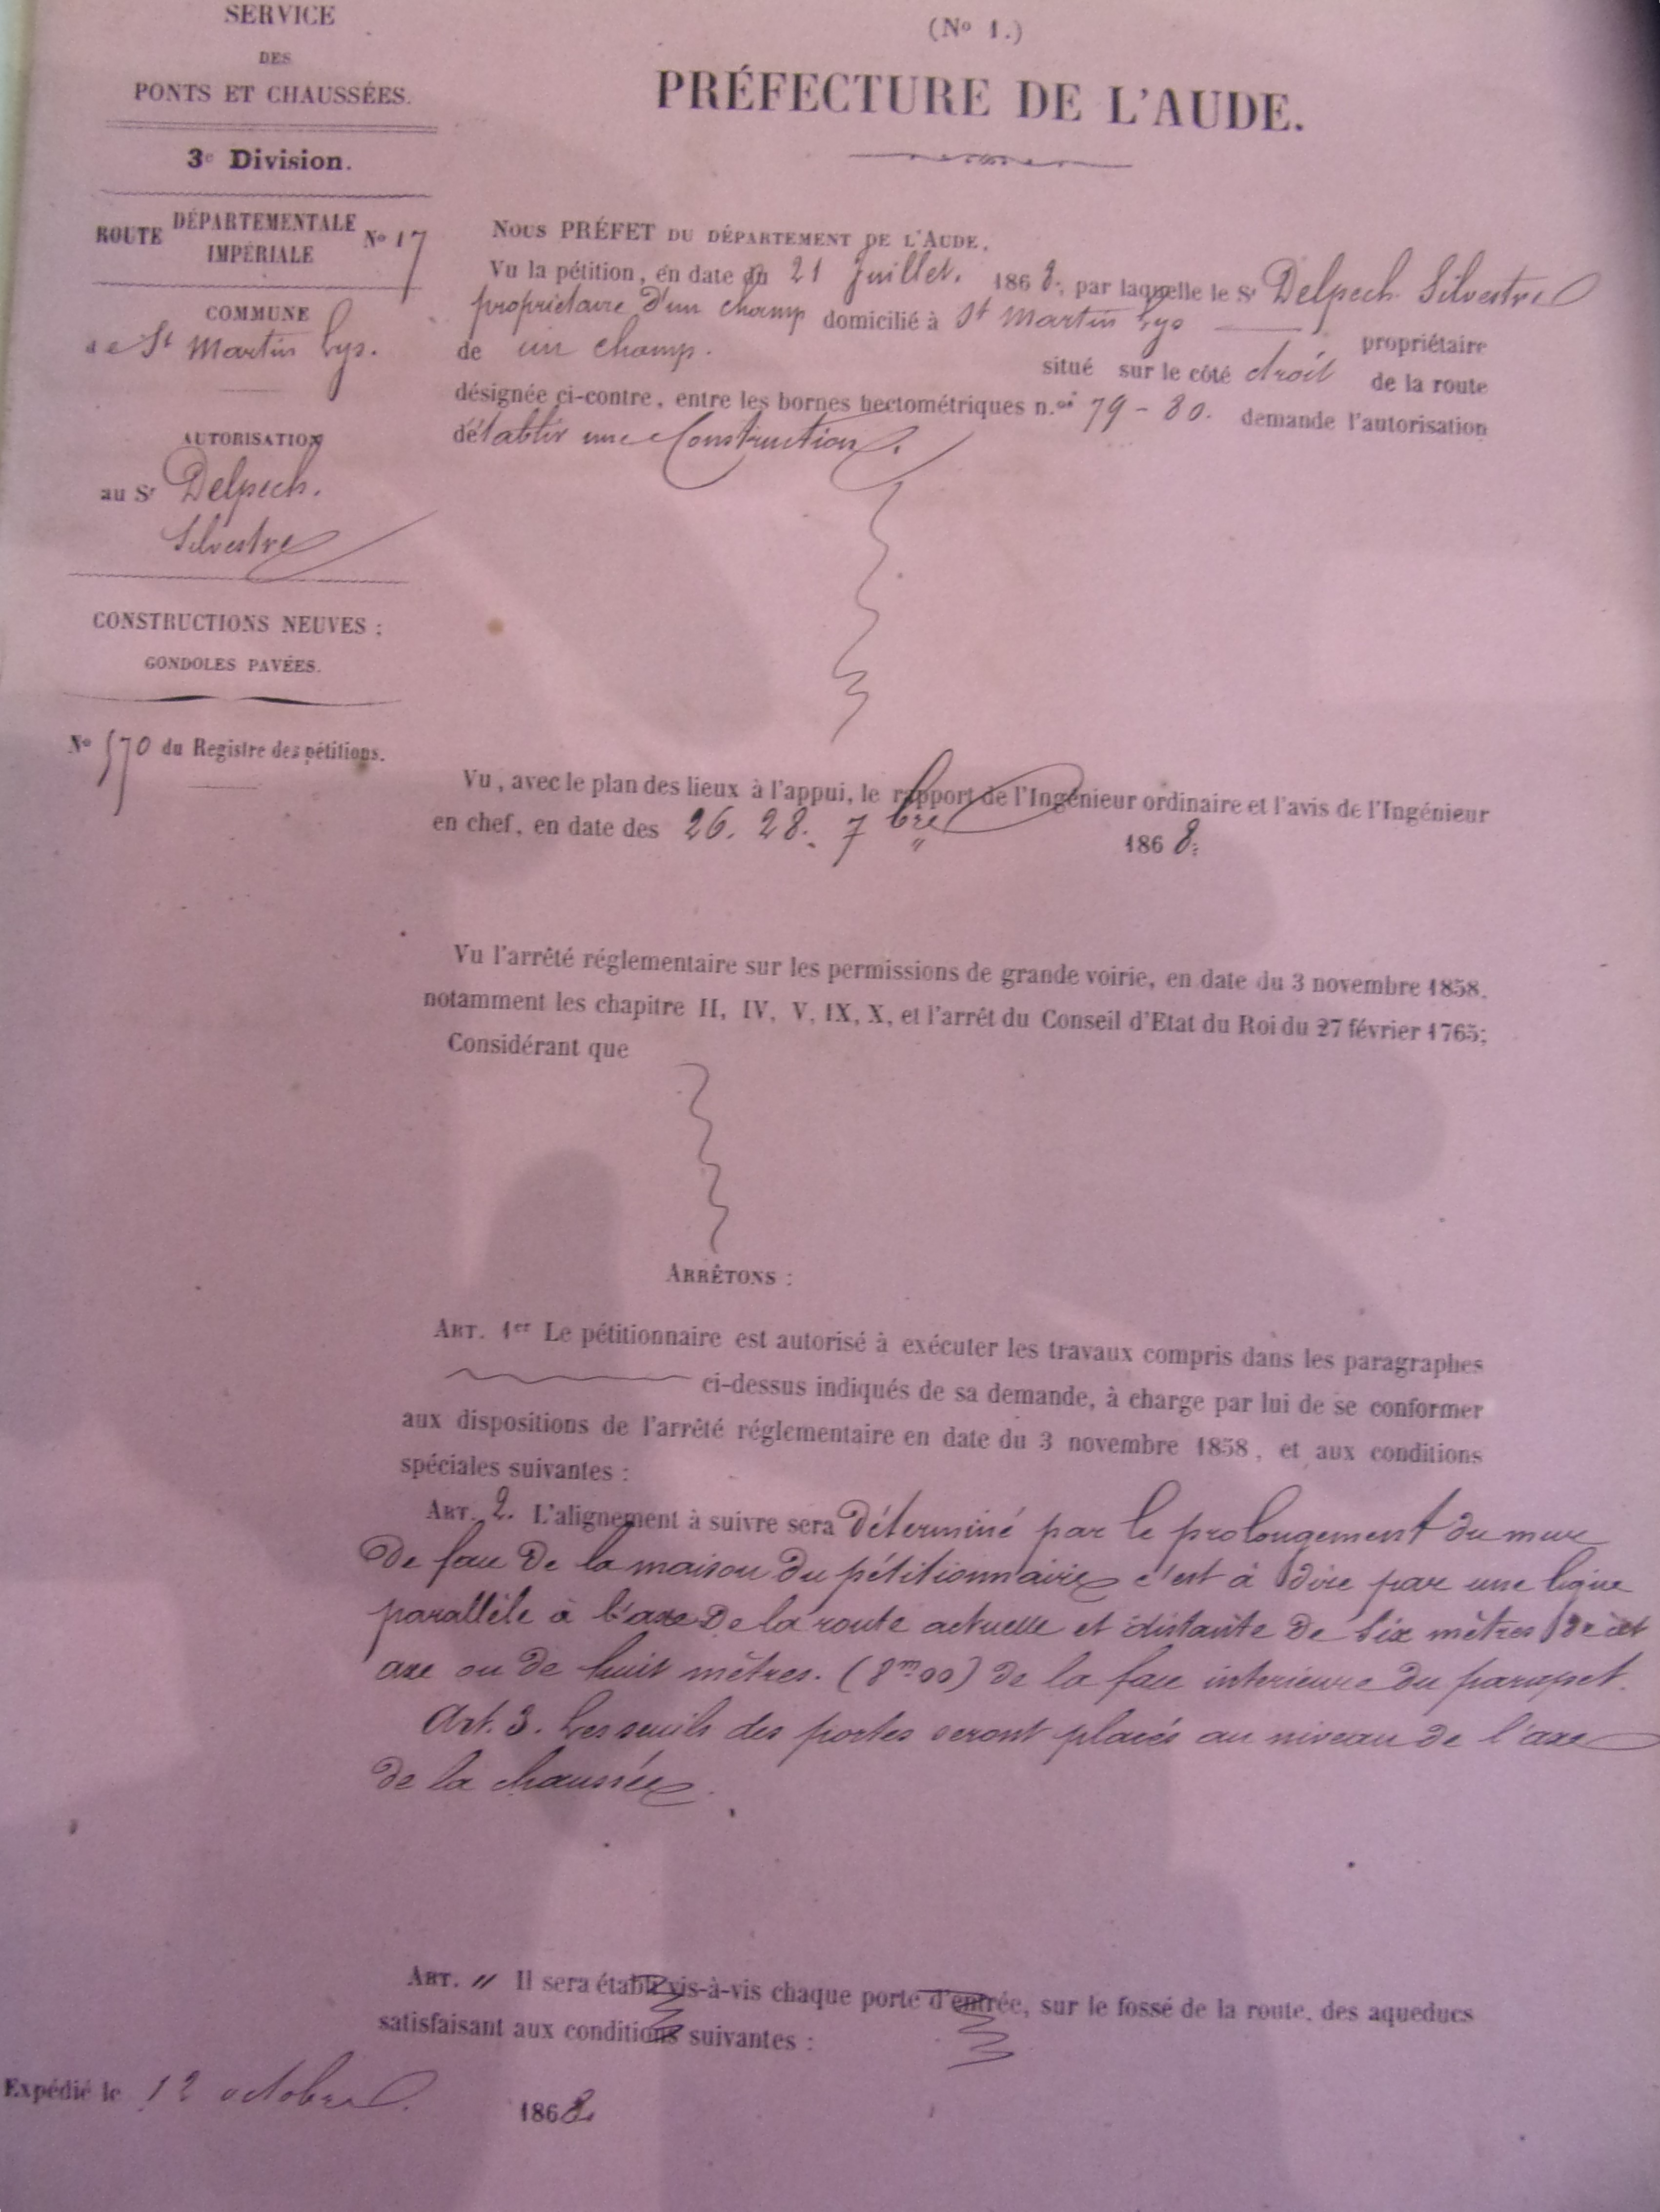 SERVICE
DES
PONTS ET CHAUSSÉES.
3e Division.
ROUTE DÉPARTEMENTALE No 17
IMPÉRIALE
COMMUNE
de St Martin Lys.
AUTORISATION
au Sr Delpech.
Silvestre
CONSTRUCTIONS NEUVES :
GONDOLES PAVÉES.
No 570 du Registre des pétitions.
(No 1.)
PRÉFECTURE DE L'AUDE.
NOUS PRÉFET DU DÉPARTEMENT DE L'AUDE,
Vu la pétition, en date du 21 Juillet. 1868, par laquelle le Sr Delpech Silvestre
propriétaire d'un champ domicilié à St Martin Lys propriétaire
de un champ. situé sur le côté droit de la route
désignée ci-contre, entre les bornes hectométriques n.os 79 - 80. demande l'autorisation
d'établir une Construction.
Vu, avec le plan des lieux à l'appui, le rapport de l'Ingénieur ordinaire et l'avis de l'Ingénieur
en chef, en date des 26. 28. 7bre 1868.
Vu l'arrêté réglementaire sur les permissions de grande voirie, en date du 3 novembre 1858,
notamment les chapitre II, IV, V, IX, X, et l'arrêt du Conseil d'Etat du Roi du 27 février 1765;
Considérant que
ARRÊTONS :
ART. 1er Le pétitionnaire est autorisé à exécuter les travaux compris dans les paragraphes
ci-dessus indiqués de sa demande, à charge par lui de se conformer
aux dispositions de l'arrêté réglementaire en date du 3 novembre 1858, et aux conditions
spéciales suivantes :
ART. 2. L'alignement à suivre sera déterminé par le prolongement du mur
de face de la maison du pétitionnaire c'est à dire par une ligne
parallèle à l'axe de la route actuelle et distante de six mètres de cet
axe ou de huit mètres. (8m00) de la face interieure du parapet.
Art. 3. Les seuils des portes seront placés au niveau de l'axe
de la chaussée.
ART. " Il sera établi vis-à-vis chaque porte d'entrée, sur le fossé de la route, des aqueducs
satisfaisant aux conditions suivantes :
Expédié le 12 octobre 1868.